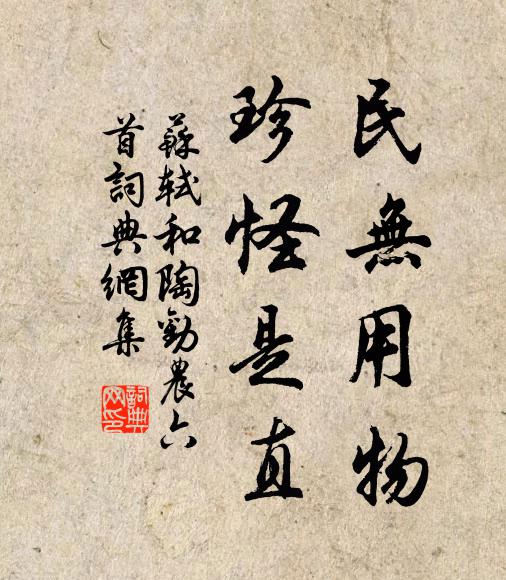 民無用物
珍怪是直
蘇軾和陶勸農六
首詞典網集
詞典
网印